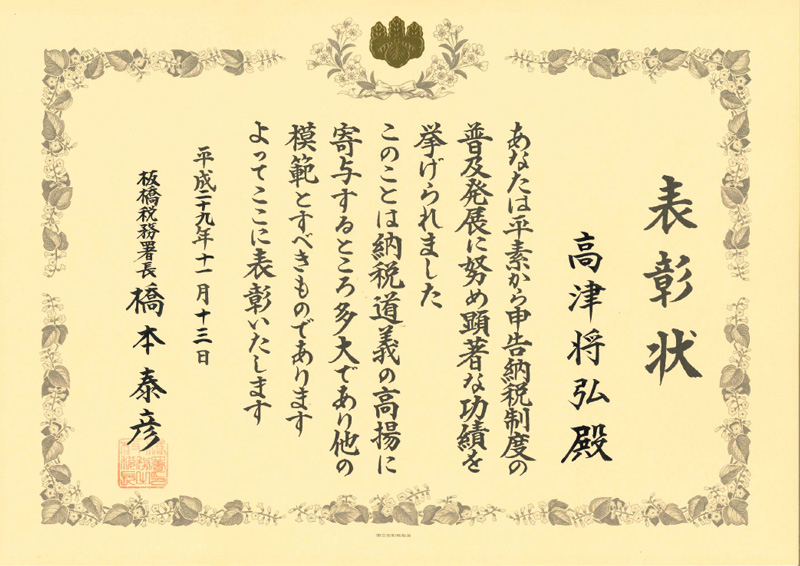 表彰状
高津将弘殿
あなたは平素から申告納税制度の
普及発展に努め顕著な功績を
挙げられました
このことは納税道義の高揚に
寄与するところ多大であり他の
模範とすべきものであります
よってここに表彰いたします
平成二十九年十一月十三日
板橋税務署長 橋本泰彦